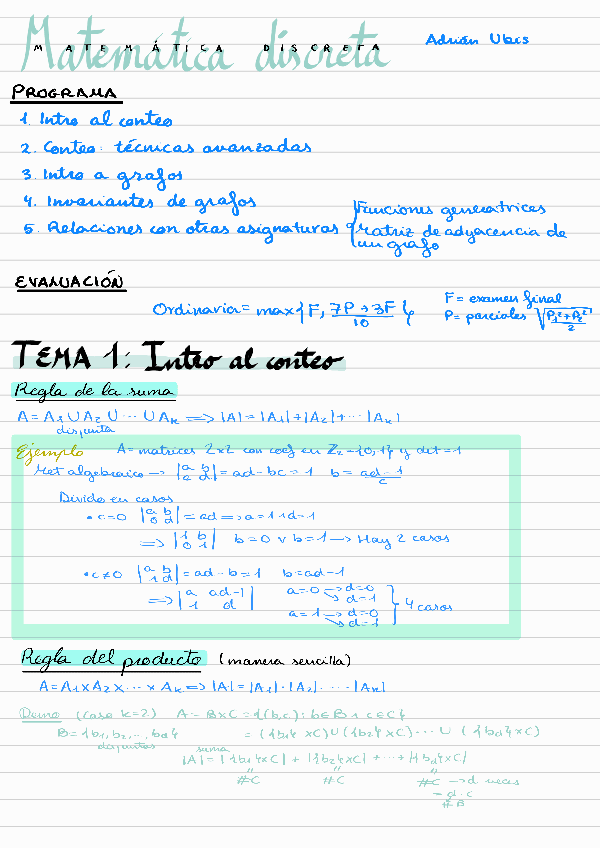 Matemática discreta
MATEMÁTICA DISCRETA
Adrián Ubis
PROGRAMA
1. Intro al conteo
2. Conteo: técnicas avanzadas
3. Intro a grafos
4. Invariantes de grafos
5. Relaciones con otras asignaturas { Funciones generatrices
Matriz de adyacencia de
un grafo
EVALUACIÓN
Ordinaria = max{F, (7P+3F)/10}
F = examen final
P = parciales √((P₁²+P₂²)/2)
TEMA 1: Intro al conteo
Regla de la suma
A = A₁ ∪ A₂ ∪ ... ∪ Aₖ ⟹ |A| = |A₁|+|A₂|+...|Aₖ|
disjunta
Ejemplo A = matrices 2x2 con coef en ℤ₂ = {0,1} y det = 1
Met algebraico → |a b; c d| = ad - bc = 1 b = (ad-1)/c
Divido en casos
• c=0 |a b; 0 d| = ad ⟹ a=1 d=1
⟹ |1 b; 0 1| b=0 ∨ b=1 → Hay 2 casos
• c≠0 |a b; 1 d| = ad - b = 1 b = ad-1
⟹ |a ad-1; 1 d| a=0 → d=0
→ d=1
a=1 → d=0
→ d=1
4 casos
Regla del producto (manera sencilla)
A = A₁ x A₂ x ... x Aₖ ⟹ |A| = |A₁|·|A₂|· ... ·|Aₖ|
Demo (caso k=2) A = B×C = {(b,c): b∈B, c∈C}
B = {b₁, b₂, ..., b_d} = ({b₁} ×C) ∪ ({b₂} ×C) ... ∪ ({b_d} ×C)
disjuntas
suma
|A| = |{b₁}×C| + |{b₂}×C| + ... + |{b_d}×C|
#C #C #C → d veces
= d·c
#B